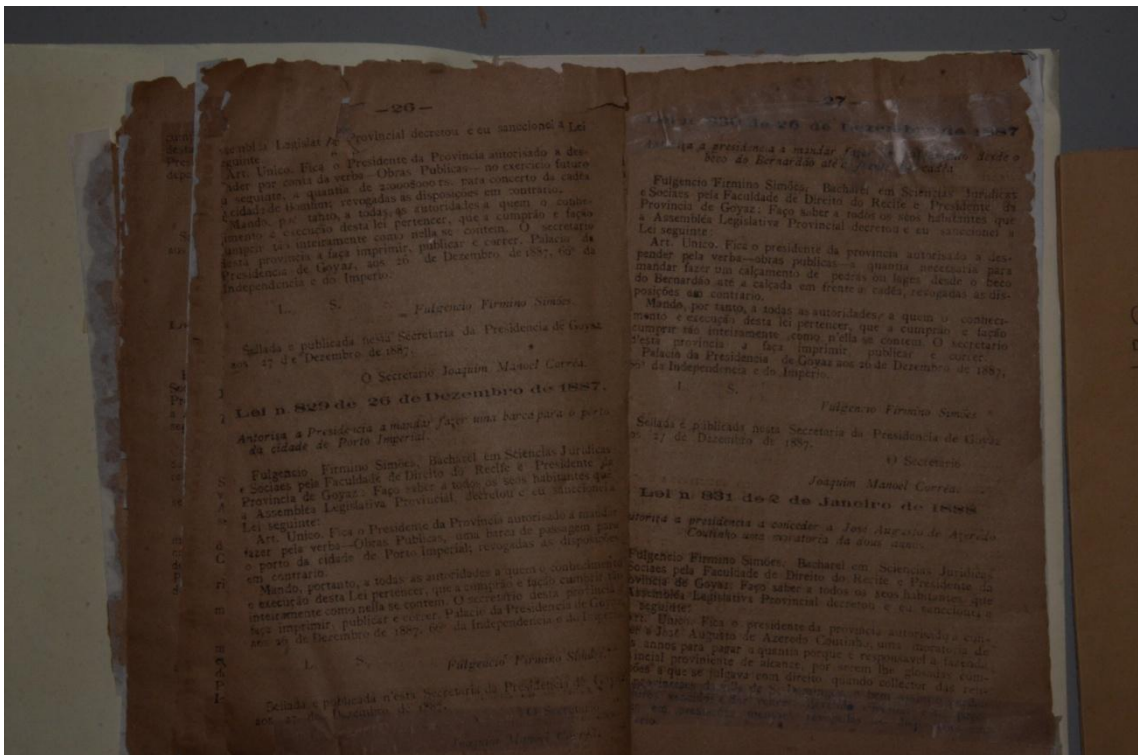 —26—
Provincial decretou e eu sanccionei a Lei
seguinte
Art. Unico. Fica o Presidente da Provincia autorisado a des-
por conta da verba—Obras Publicas— no exercicio futuro
a seguinte, a quantia de para concerto da cadêa
cidade de revogadas as disposições em contrario.
Mando, por tanto, a todas as autoridades a quem o conhe-
imento e execução desta lei pertencer, que a cumprão e fação
umprir tão inteiramente como nella se contem. O secretario
desta provincia a faça imprimir, publicar e correr. Palacio da
Presidencia de Goyaz, aos 26 de Dezembro de 1887, 66º da
Independencia e do Imperio.
L. S. Fulgencio Firmino Simões.
Sellada e publicada nesta Secretaria da Presidencia de Goyaz
aos 27 de Dezembro de 1887.
O Secretario Joaquim Manoel Corrêa.
Lei n. 829 de 26 de Dezembro de 1887.
Autorisa a Presidencia a mandar fazer uma barca para o porto
da cidade de Porto Imperial.
Fulgencio Firmino Simões, Bacharel em Sciencias Juridicas
e Sociaes pela Faculdade de Direito do Recife e Presidente da
Provincia de Goyaz: Faço saber a todos os seus habitantes que
a Assembléa Legislativa Provincial, decretou e eu sanccionei a
Lei seguinte:
Art. Unico. Fica o Presidente da Provincia autorisado a mandar
fazer pela verba—Obras Publicas, uma barca de passagem para
o porto da cidade de Porto imperial; revogadas as disposições
em contrario.
Mando, portanto, a todas as autoridades a quem o conhecimento
e execução desta Lei pertencer, que a cumprão e fação cumprir tão
inteiramente como nella se contem. O secretario desta provincia a
faça imprimir, publicar e correr. Palacio da Presidencia de Goyaz
aos de Dezembro de 1887, 66º da Independencia e do Imperio.
L. S. Fulgencio Firmino Simões
Sellada e publicada n'esta Secretaria da Presidencia de Goyaz
aos 27 de Dezembro de 1887.
O Secretario
Joaquim Manoel Corrêa.
—27—
Lei n. 830 de 26 de Dezembro de 1887
Autorisa a presidencia a mandar fazer desde o
beco do Bernardão até a
Fulgencio Firmino Simões, Bacharel em Sciencias Juridicas
e Sociaes pela Faculdade de Direito do Recife e Presidente da
Provincia de Goyaz: Faço saber a todos os seus habitantes que
a Assembléa Legislativa Provincial decretou e eu sanccionei a
Lei seguinte:
Art. Unico. Fica o presidente da provincia autorisado a des-
pender pela verba—obras publicas—a quantia necessaria para
mandar fazer um calçamento de pedras ou lages desde o beco
do Bernardão até a calçada em frente a cadêa, revogadas as dis-
posições em contrario.
Mando, por tanto, a todas as autoridades, a quem o conheci-
mento e execução desta lei pertencer, que a cumprão e fação
cumprir tão inteiramente como n'ella se contem. O secretario
d'esta provincia a faça imprimir, publicar e correr.
Palacio da Presidencia de Goyaz aos 26 de Dezembro de 1887,
66º da Independencia e do Imperio.
L. S.
Fulgencio Firmino Simões.
Sellada e publicada nesta Secretaria da Presidencia de Goyaz
aos 27 de Dezembro de 1887.
O Secretario
Joaquim Manoel Corrêa.
Lei n. 831 de 2 de Janeiro de 1888
autorisa a presidencia a conceder a José Augusto de Azevedo
Coutinho uma moratoria de dous annos.
Fulgencio Firmino Simões, Bacharel em Sciencias Juridicas
Sociaes pela Faculdade de Direito do Recife e Presidente da
rovincia de Goyaz: Faço saber a todos os seus habitantes, que
Assembléa Legislativa Provincial decretou e eu sanccionei a
seguinte:
Art. Unico. Fica o presidente da provincia autorisado a con-
a José Augusto de Azevedo Coutinho, uma moratoria de
annos para pagar a quantia porque é responsavel a fazenda
incial proveniente de alcance, por serem lhe glosadas com-
sões a que se julgava com direito quando collector das ren-